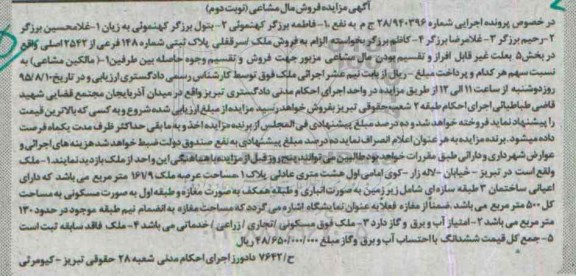 آگهی مزایده فروش مال مشاعی (نوبت دوم)
در خصوص پرونده اجرایی شماره 28/940396 ج م به نفع 1- فاطمه برزگر کهنموئی 2- بتول برزگر کهنموئی به زیان 1- غلامحسین برزگر
2- رحیم برزگر 3- غلامرضا برزگر 4- کاظم برزگر بخواسته الزام به فروش ملک /سرقفلی پلاک ثبتی شماره 148 فرعی از 2542 اصلی واقع
در بخش 5 بعلت غیر قابل افراز و تقسیم بودن مال مشاعی مزبور جهت فروش و تقسیم وجوه حاصله بین طرفین 1- (مالکین مشاعی) به
نسبت سهم هر کدام و پرداخت مبلغ - ریال از بابت نیم عشر اجرائی ملک فوق توسط کارشناس رسمی دادگستری ارزیابی و در تاریخ 95/8/10
روز دوشنبه از ساعت 11 الی 12 از طریق مزایده در واحد اجرای احکام مدنی دادگستری تبریز واقع در میدان آذربایجان مجتمع قضایی شهید
قاضی طباطبائی اجرای احکام طبقه 2 شعبه حقوقی تبریز بفروش خواهد رسید. مزایده از مبلغ ارزیابی شده شروع و به کسی که بالاترین قیمت
را پیشنهاد نماید فروخته خواهد شد و ده درصد مبلغ پیشنهادی فی المجلس از برنده مزایده اخذ و به ما بقی حداکثر ظرف مدت یکماه فرصت
داده میشود. برنده مزایده به هر عنوان اعلام انصراف نماید ده درصد مبلغ پیشنهادی به نفع صندوق دولت ضبط خواهد شد هزینه های اجرائی و
عوارض شهرداری و دارائی طبق مقررات خواهد بود طالبین می توانند پنج روز قبل از مزایده با هماهنگی این واحد از ملک بازدید نمایند 1- ملک
واقع است در تبریز - خیابان - لاله زار - کوی امامی اول هشت متری عادلی پلاک 1 مساحت عرصه ملک 1679 متر مربع می باشد که دارای
اعیانی ساختمان 3 طبقه سازه ای شامل زیرزمین به صورت انباری و طبقه همکف به صورت مغازه و طبقه اول به صورت مسکونی به مساحت
کل 500 متر مربع می باشد. ضمناً از مغازه فعلا به عنوان نمایشگاه اشاره می گردد که مساحت مغازه به انضمام نیم طبقه موجود در حدود 130
متر مربع می باشد 2- امتیاز آب و برق و گاز دارد 3- ملک فوق مسکونی /تجاری / زراعی / خدماتی می باشد 4- ملک فاقد سابقه ثبت است
5- جمع کل قیمت ششدانگ با احتساب آب و برق و گاز مبلغ 48/650/000/000 ریال
ح/7642 دادورز اجرای احکام مدنی شعبه 28 حقوقی تبریز - کیومرثی